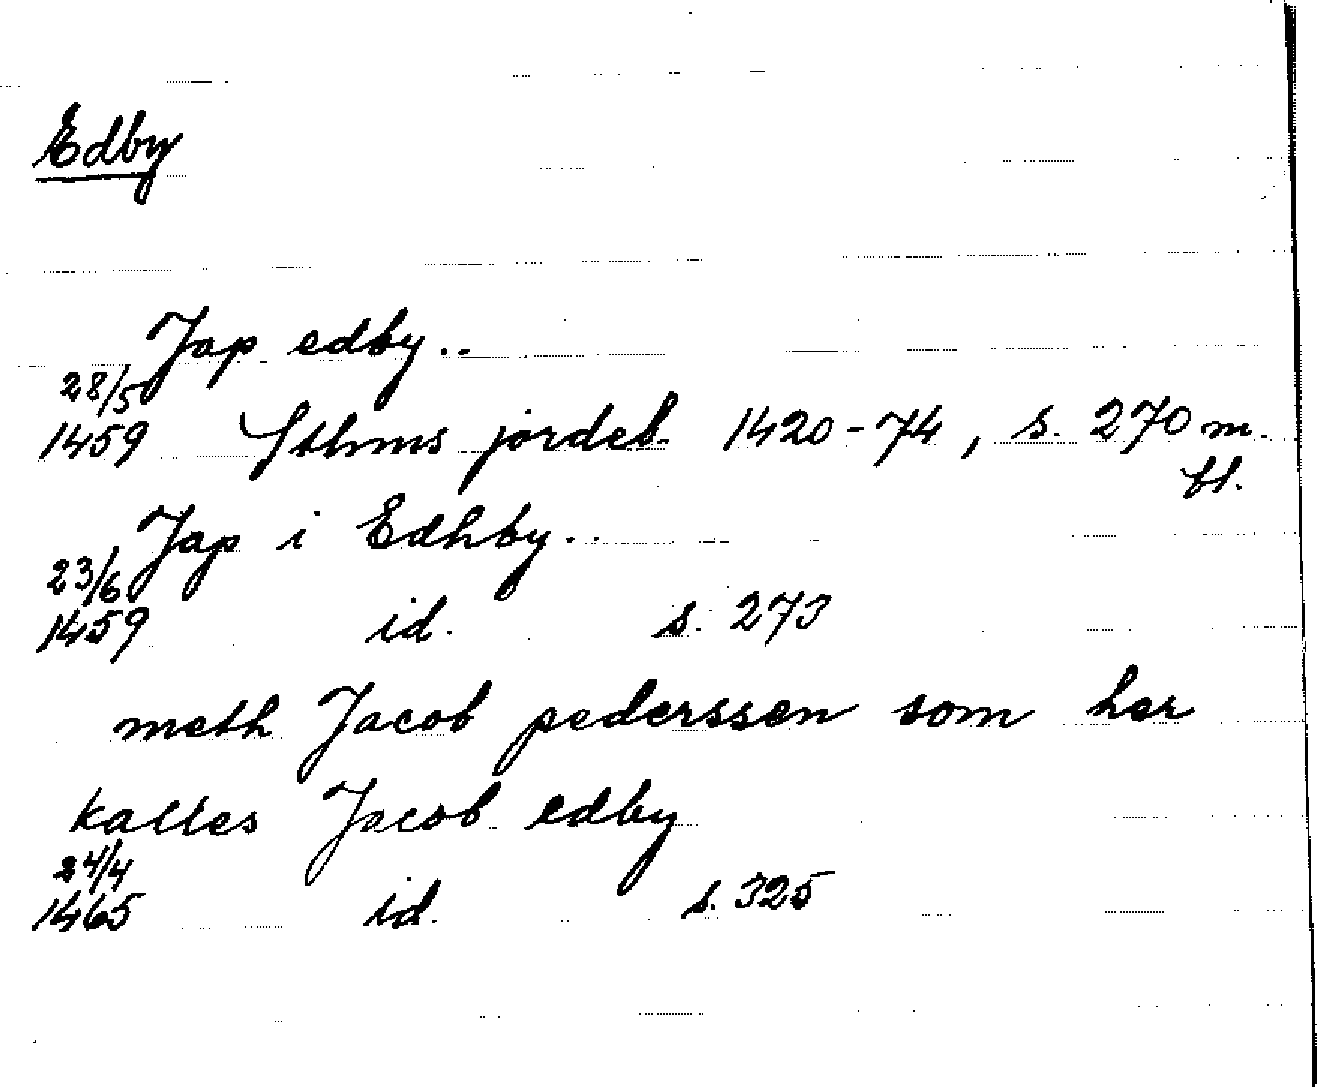 Edby
Jap edby..
28/5
1459 Sthms jordeb. 1420-74, s. 270 m.
fl.
Jap i Edhby..
23/6
1459 id. s. 273
meth Jacob pederssen som her
kalles Jacob edby
24/4
1465 id. s. 325